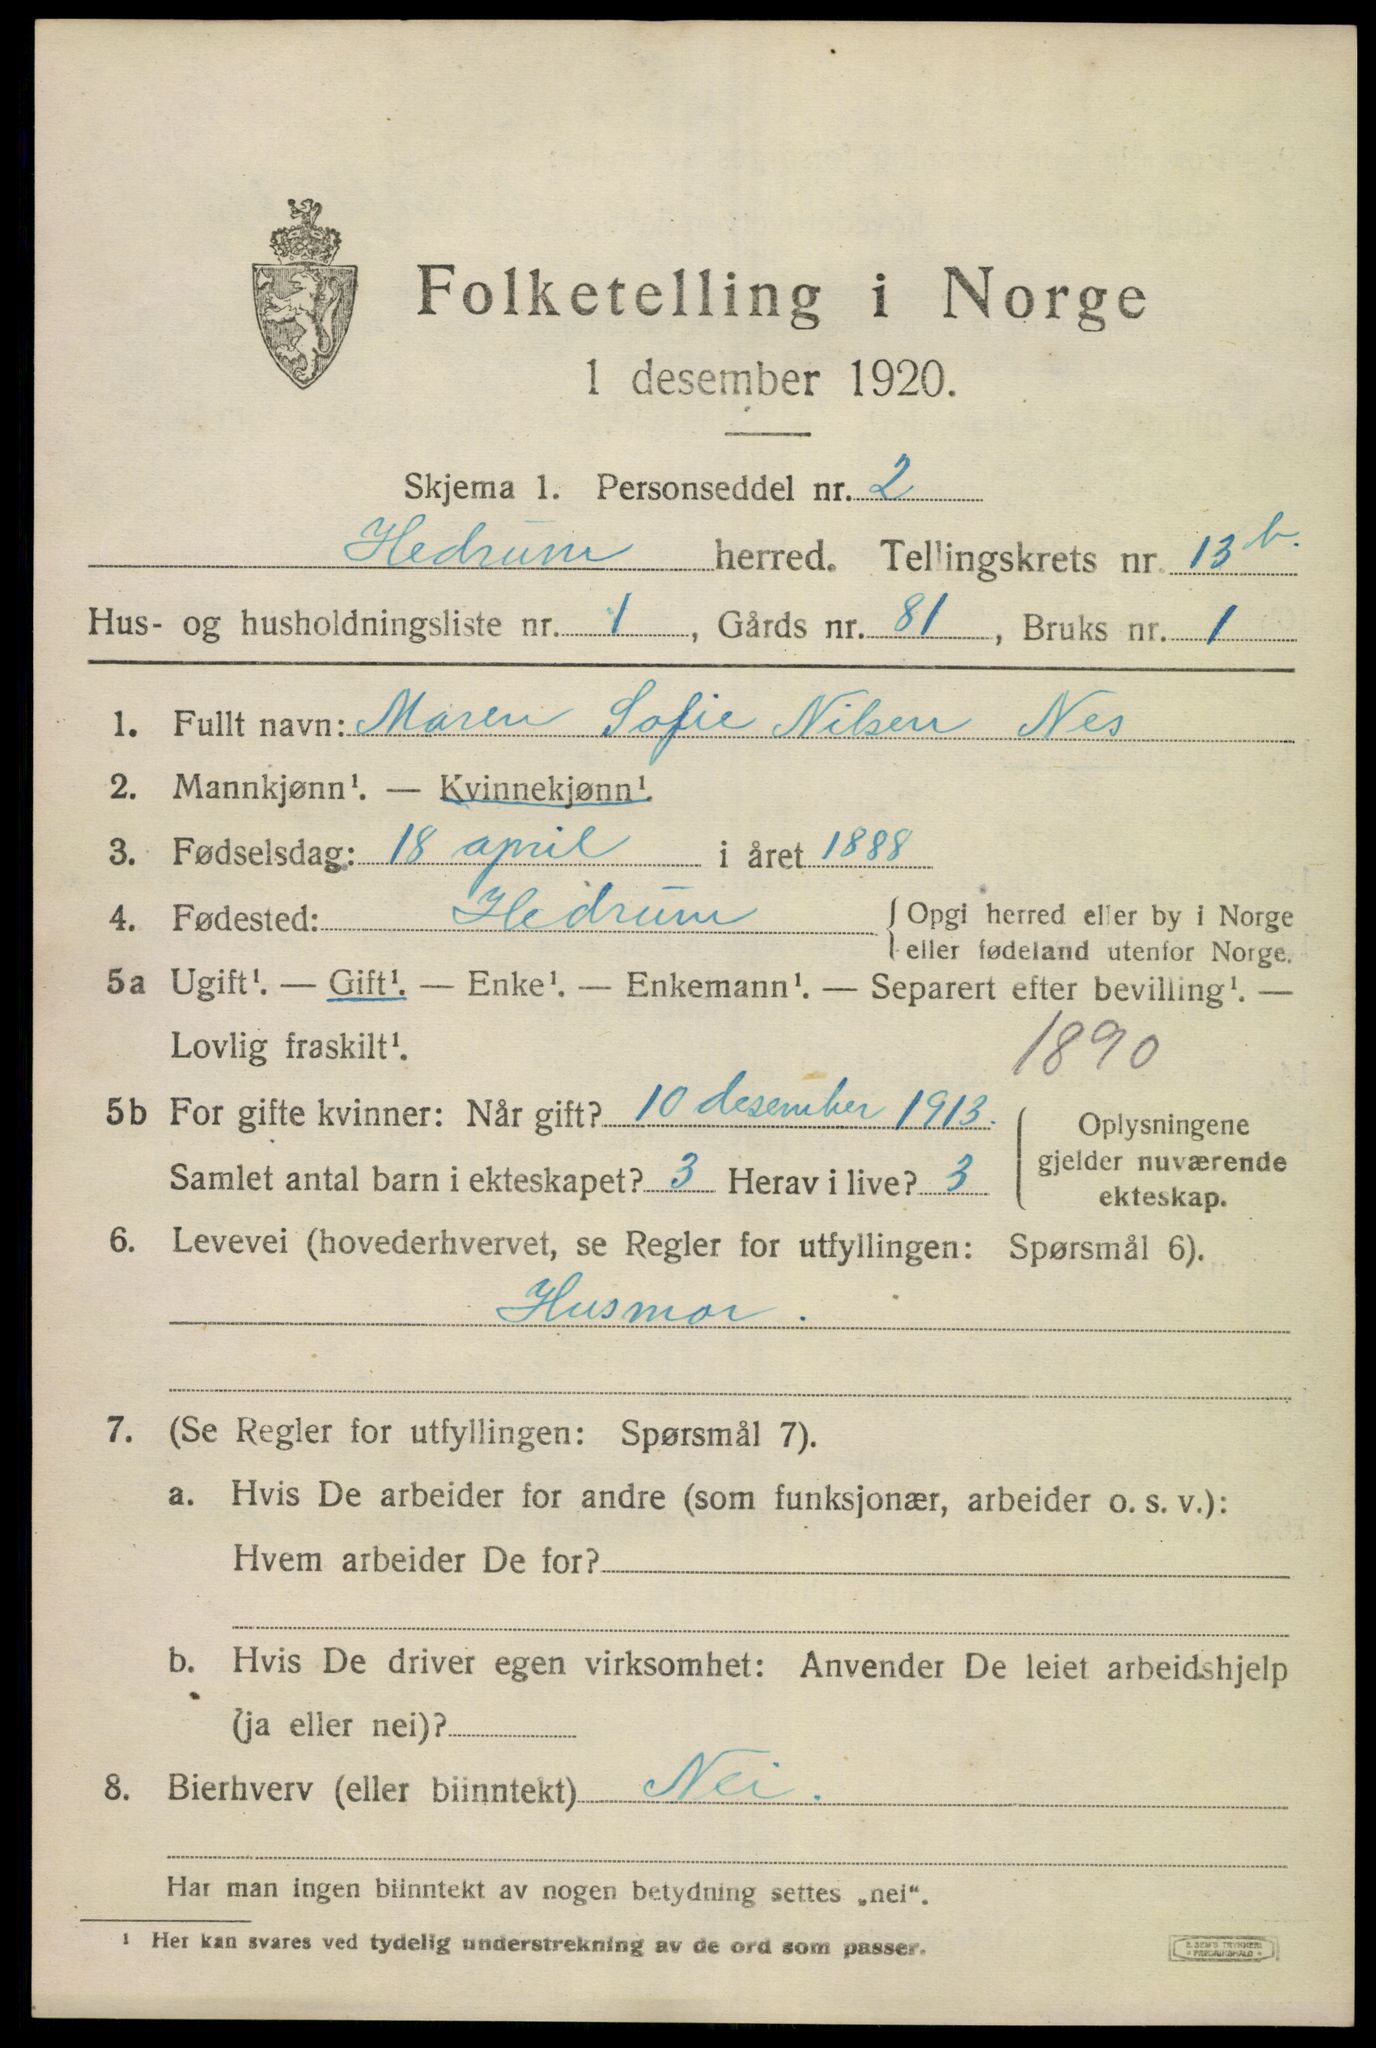 Folketelling i Norge
1 desember 1920.
Skjema 1. Personseddel nr. 2
Hedrum herred. Tellingskrets nr. 13 b.
Hus- og husholdningsliste nr. 1, Gårds nr. 81, Bruks nr. 1
1. Fullt navn: Maren Sofie Nilsen Nes
2. Mannkjønn¹. — Kvinnekjønn¹.
3. Fødselsdag: 18 april i året 1888
4. Fødested: Hedrum { Opgi herred eller by i Norge
eller fødeland utenfor Norge.
5a Ugift¹. — Gift¹. — Enke¹. — Enkemann¹. — Separert efter bevilling¹. —
Lovlig fraskilt¹. 1890
5b For gifte kvinner: Når gift? 10 desember 1913.
Samlet antal barn i ekteskapet? 3 Herav i live? 3
Oplysningene
gjelder nuværende
ekteskap.
6. Levevei (hovederhvervet, se Regler for utfyllingen: Spørsmål 6).
Husmor.
7. (Se Regler for utfyllingen: Spørsmål 7).
a. Hvis De arbeider for andre (som funksjonær, arbeider o. s. v.):
Hvem arbeider De for?
b. Hvis De driver egen virksomhet: Anvender De leiet arbeidshjelp
(ja eller nei)?
8. Bierhverv (eller biinntekt) Nei.
Har man ingen biinntekt av nogen betydning settes „nei“.
¹ Her kan svares ved tydelig understrekning av de ord som passer.
E. SEM'S TRYKKERI
FREDRIKSHALD